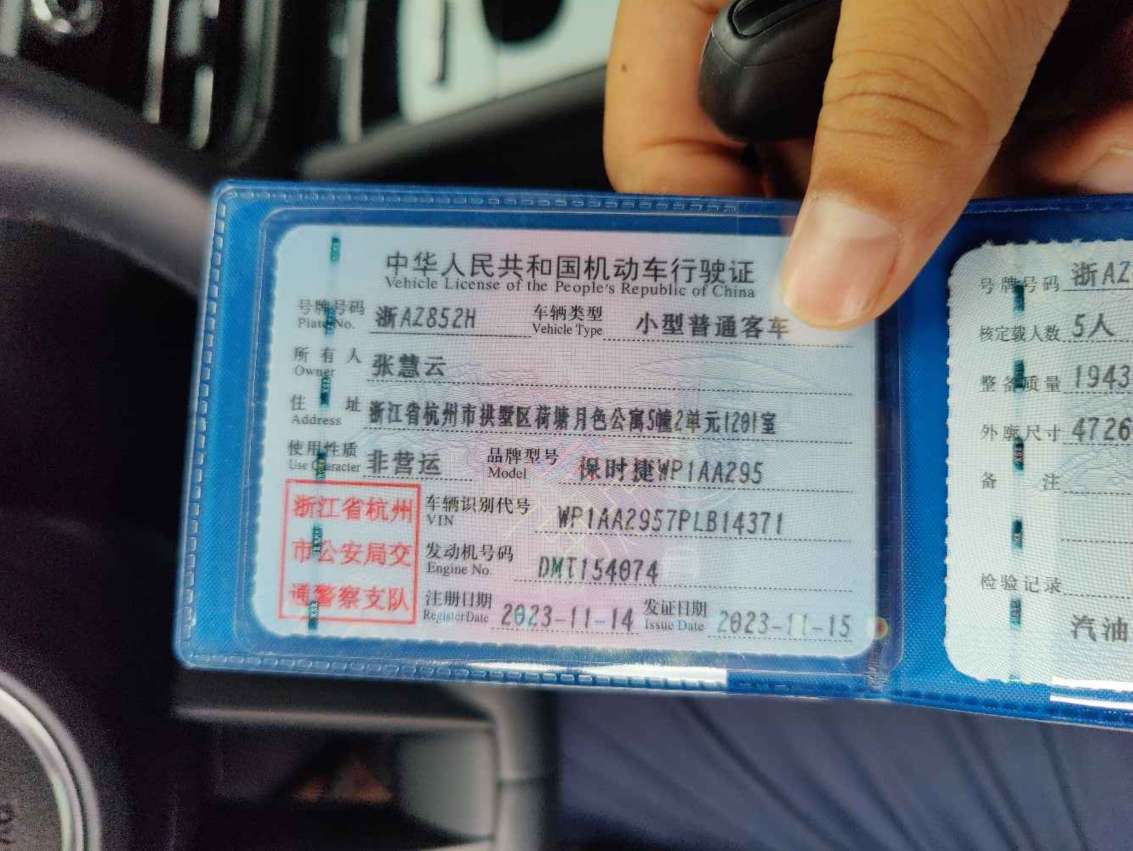 中华人民共和国机动车行驶证
Vehicle License of the People's Republic of China
号牌号码 浙AZ852H 车辆类型 小型普通客车
Plate No. Vehicle Type
所有人 张慧云
Owner
住址 浙江省杭州市拱墅区荷塘月色公寓5幢2单元1201室
Address
使用性质 非营运 品牌型号 保时捷WP1AA295
Use Character Model
浙江省杭州
市公安局交
通警察支队
车辆识别代号 WP1AA2957PLB14371
VIN
发动机号码 DMT154074
Engine No.
注册日期 2023-11-14 发证日期 2023-11-15
Register Date Issue Date
号牌号码 浙AZ
核定载人数 5人
整备质量 1943
外廓尺寸 4726
备注
检验记录
汽油